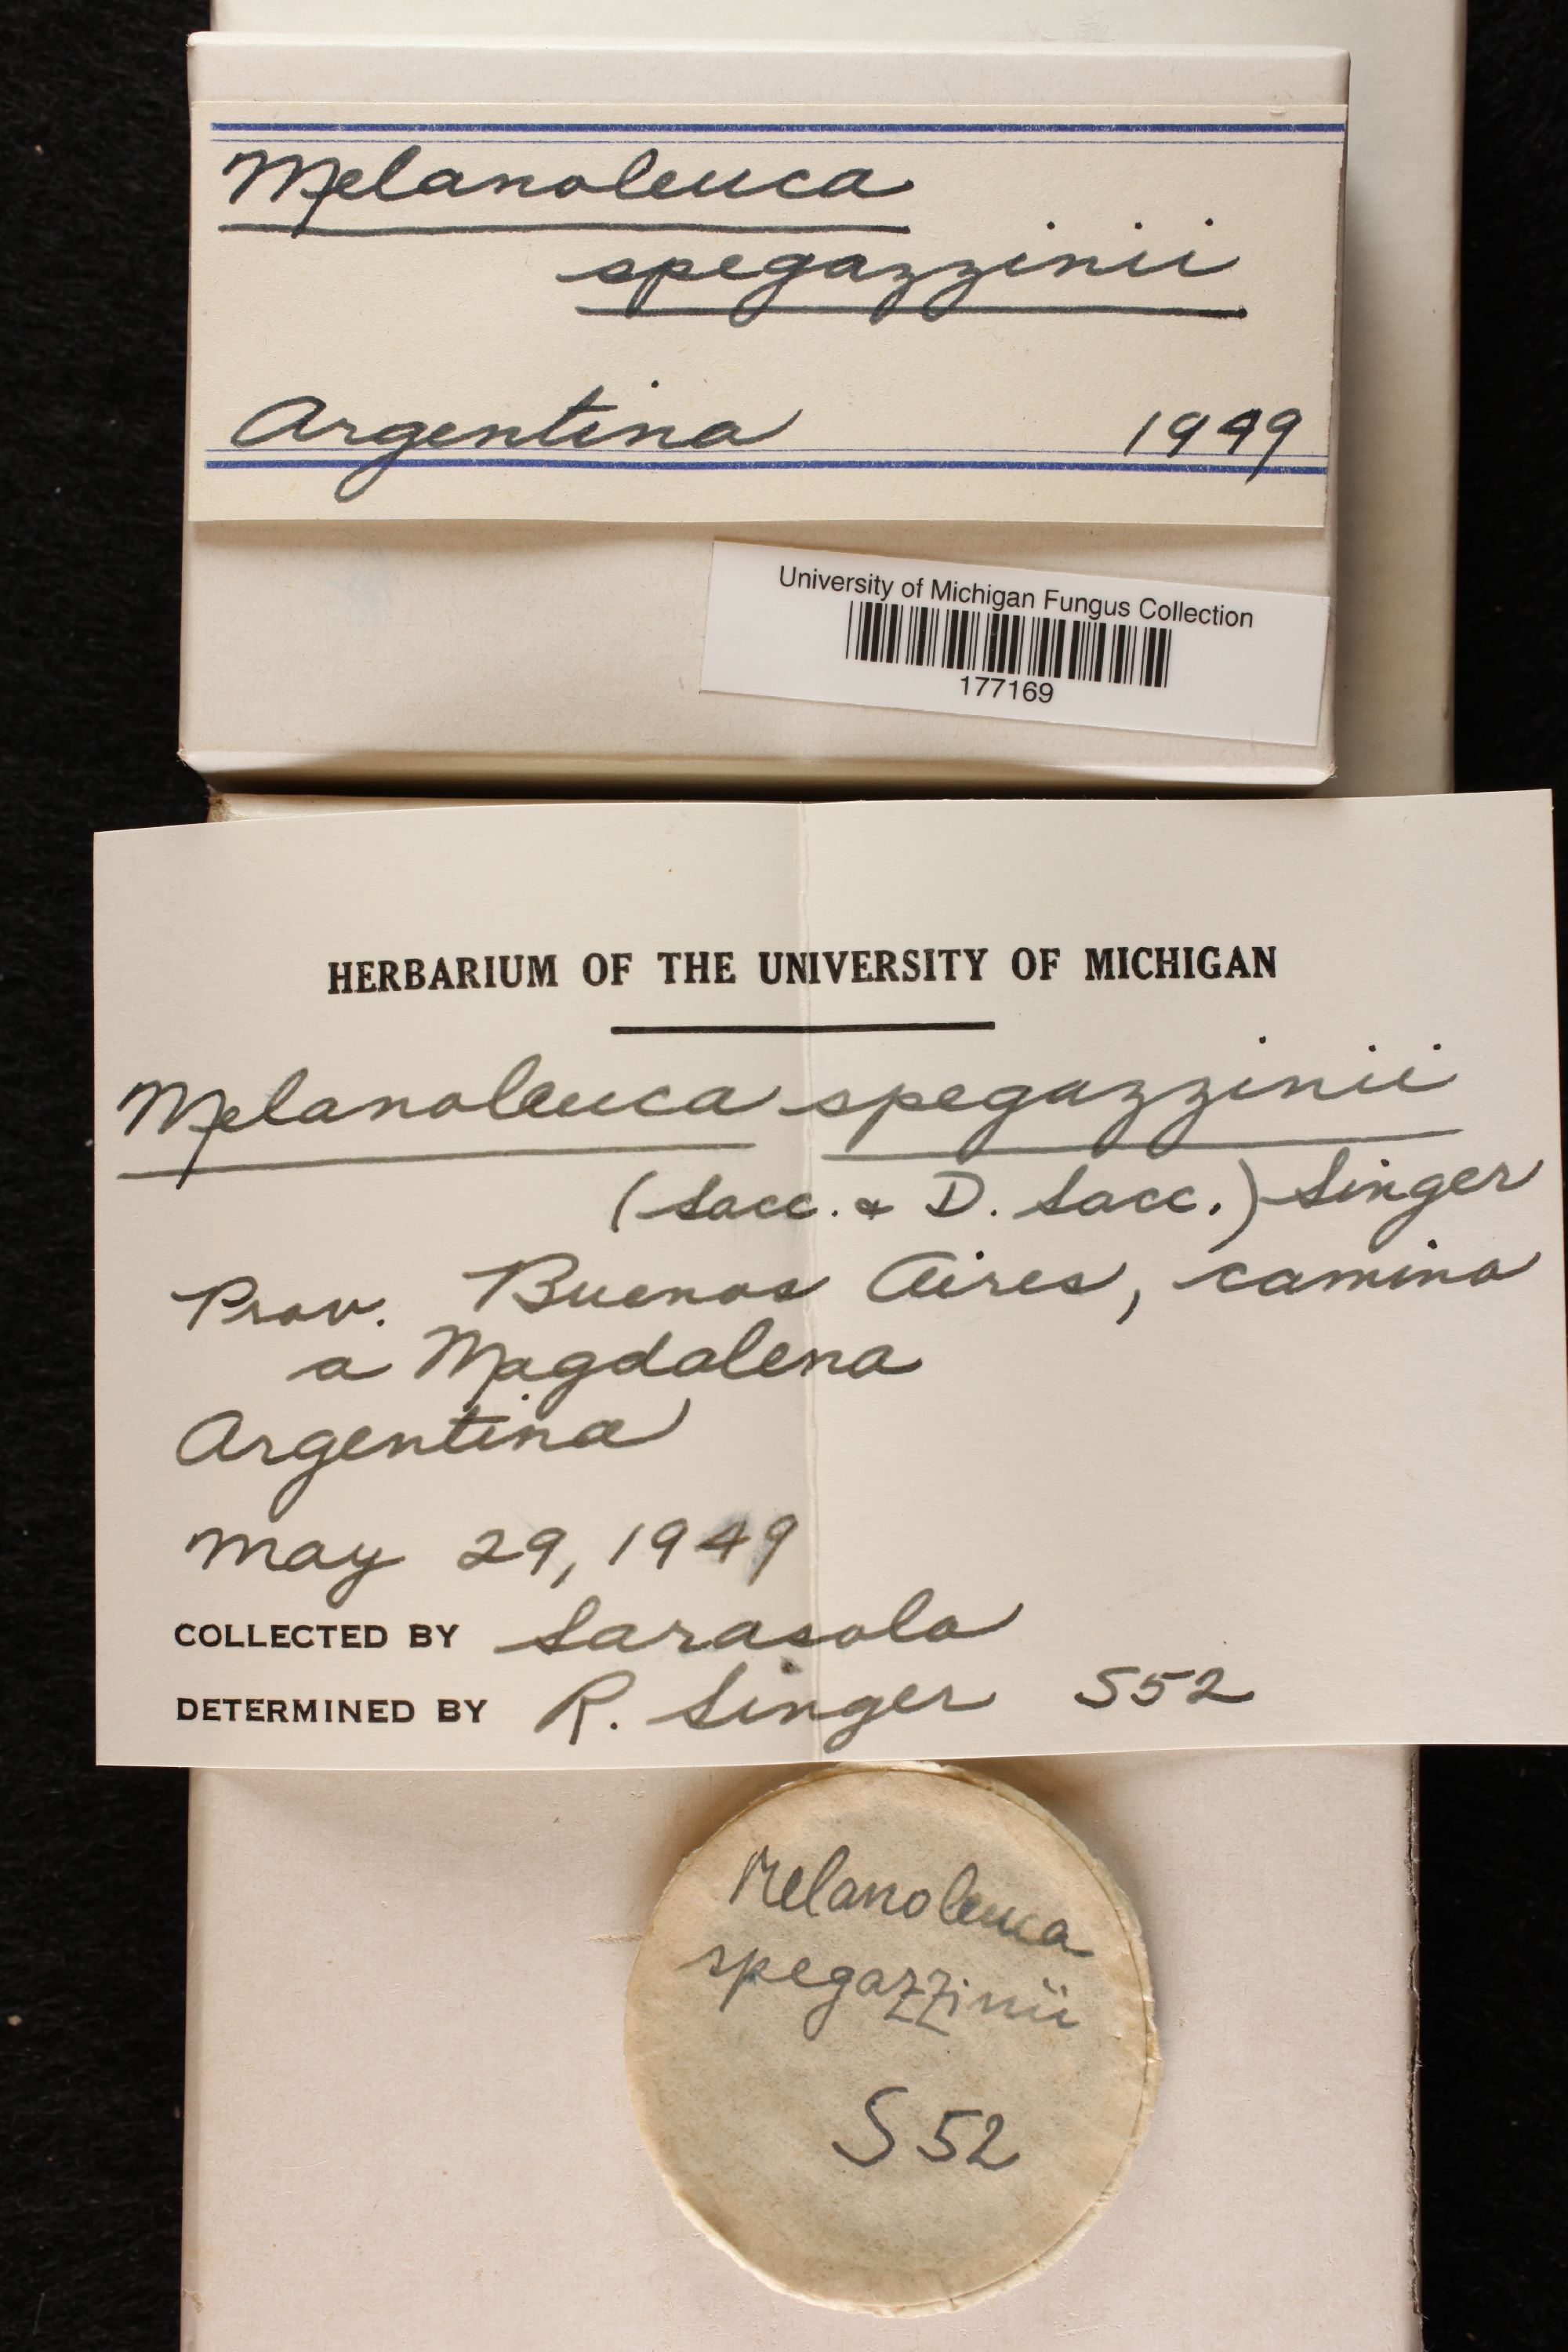 Melanoleuca
spegazzinii
Argentina 1949
University of Michigan Fungus Collection
177169
HERBARIUM OF THE UNIVERSITY OF MICHIGAN
Melanoleuca spegazzinii
(Sacc. & D. Sacc.) Singer
Prov. Buenos Aires, camino
a Magdalena
Argentina
May 29, 1949
COLLECTED BY Sarasola
DETERMINED BY R. Singer S52
Melanoleuca
spegazzinii
S52